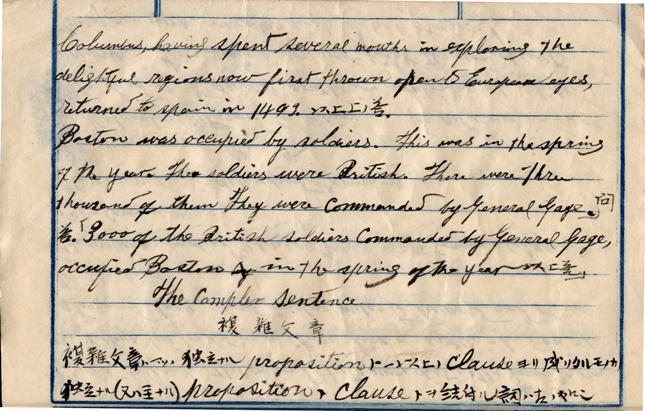 Columbus, having spent several months in exploring the
delightful regions now first thrown open to European eyes,
returned to spain in 1493. 以上上答.
Boston was occupied by soldiers. This was in the spring
of the year. The soldiers were British. There were three
thousand of them They were commanded by General Gage.」問
答.「3000 of the British soldiers Commanded by General Gage,
occupied Boston in the spring of the year 以上答」
The Complex Sentence
複雜文章
複雜文章ハ 独立ナル proposition ト 一以上 Clause ヨリ成リタルモノ
独立ナル(又ハ主ナル) proposition ト clause トヲ結付ル詞